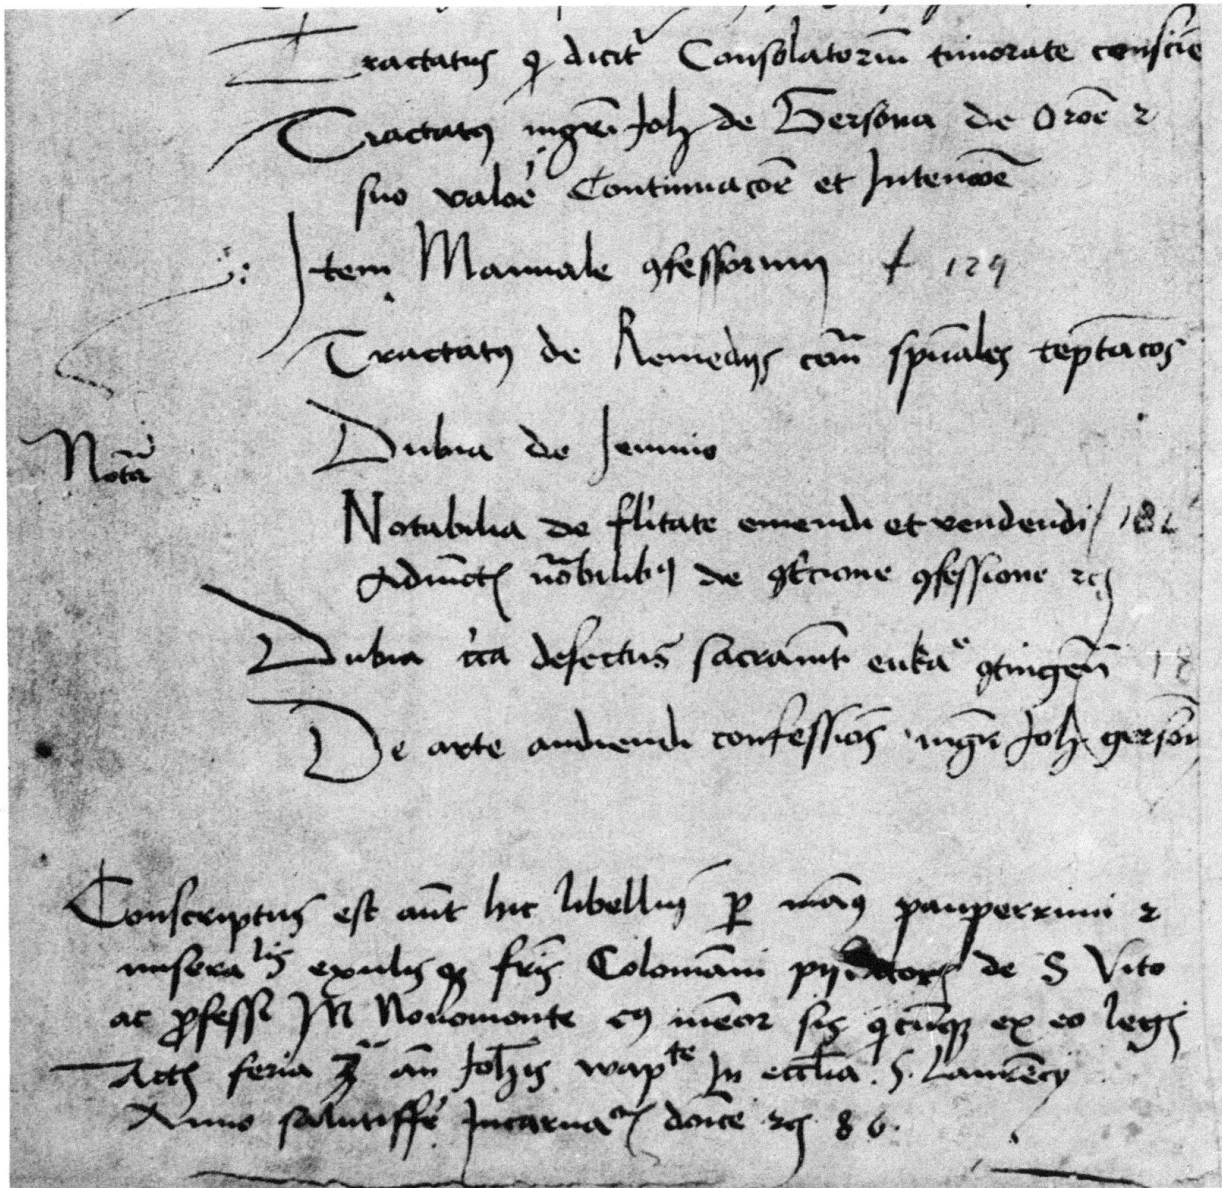 Tractatus q dicit Consolatoriu timorate conscie
Tractatus mgri Joh de Gersona de Oroe et
suo valore Continuacoe et Intencoe
Item Manuale confessorum f 129
Tractatus de Remedijs contra spuales teptacos
Nota
Dubia de Jeiunio
Notabilia de emendi et vendendi / 182
Adiunctis notabilibus de confessione etc
Dubia circa defectus sacramenti euka contingen
De arte audiendi confessiones mgri Joh gerson
Conscriptus est aut hic libellus per manus pauperrimi et
miserabilis exulisque fris Colomani de S Vito
ac professi In Novomonte cuius memor sis quicumque ex eo legis
Acta feria 3a an Johis wapte In ecclia S. Laurency
Anno salutiffere Incarnacois dnice etc 86.